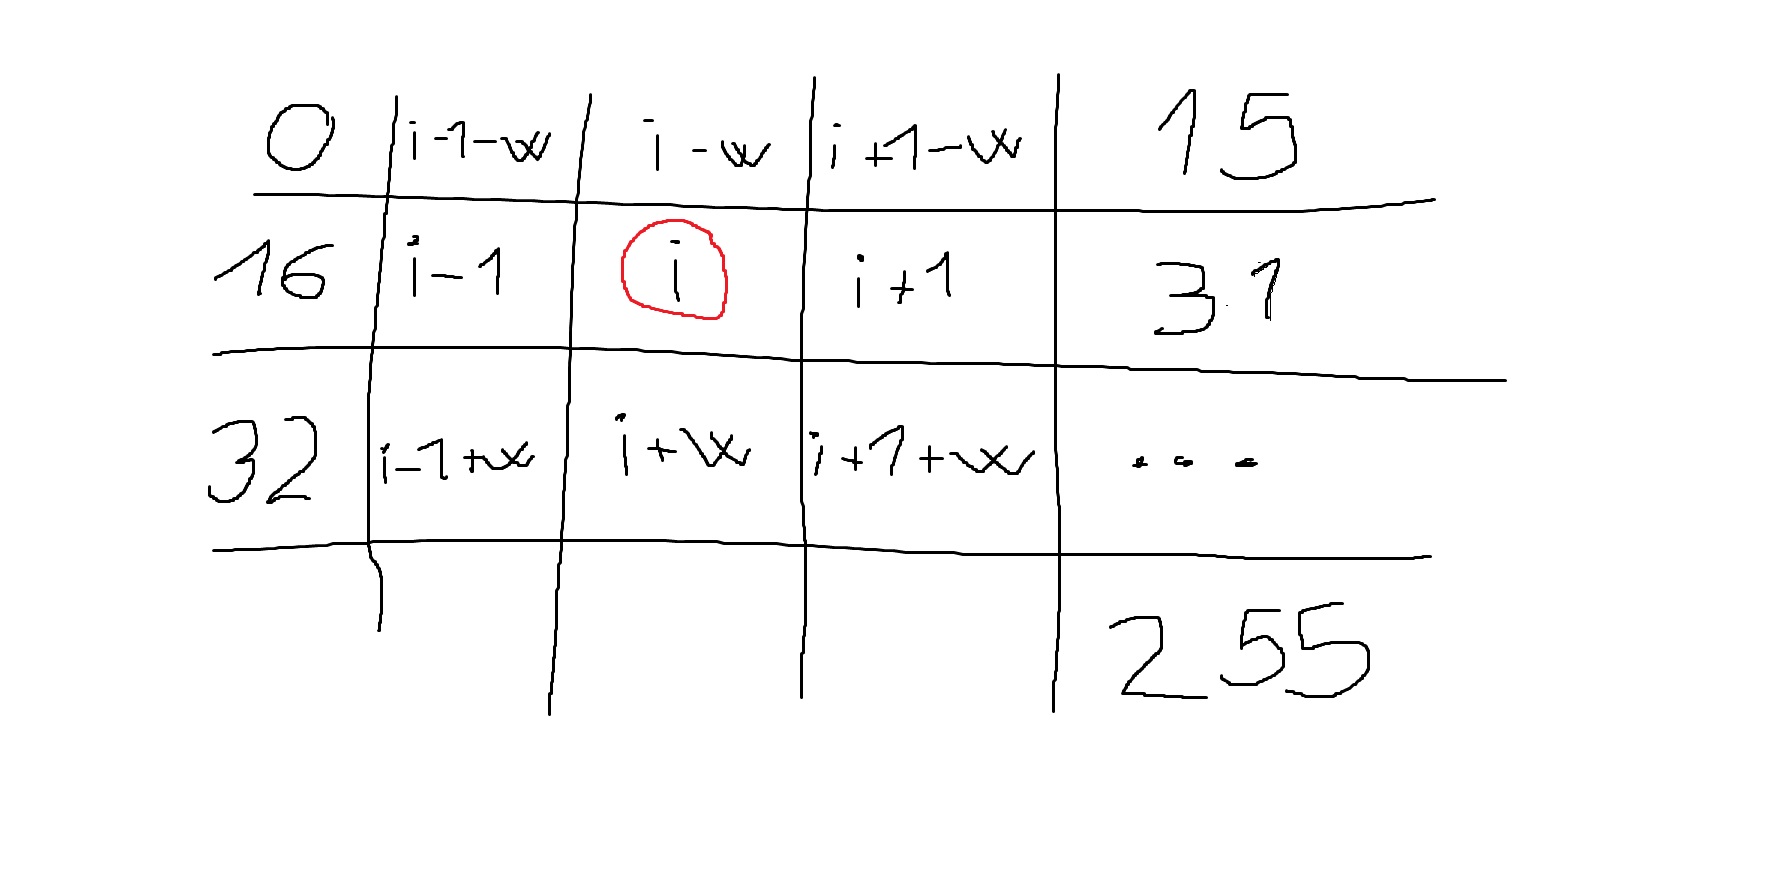 0 i-1-w i-w i+1-w 15
16 i-1 i i+1 31
32 i-1+w i+w i+1+w ...
255